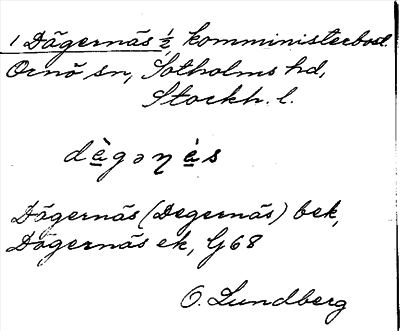 1 Dägernäs ½, komministerbost.
Ornö sn, Sotholms hd,
Stockh. l.
dè̠gəŋè̠s
Dägernäs (Degernäs) bek,
Dägernäs ek, G68
O. Lundberg